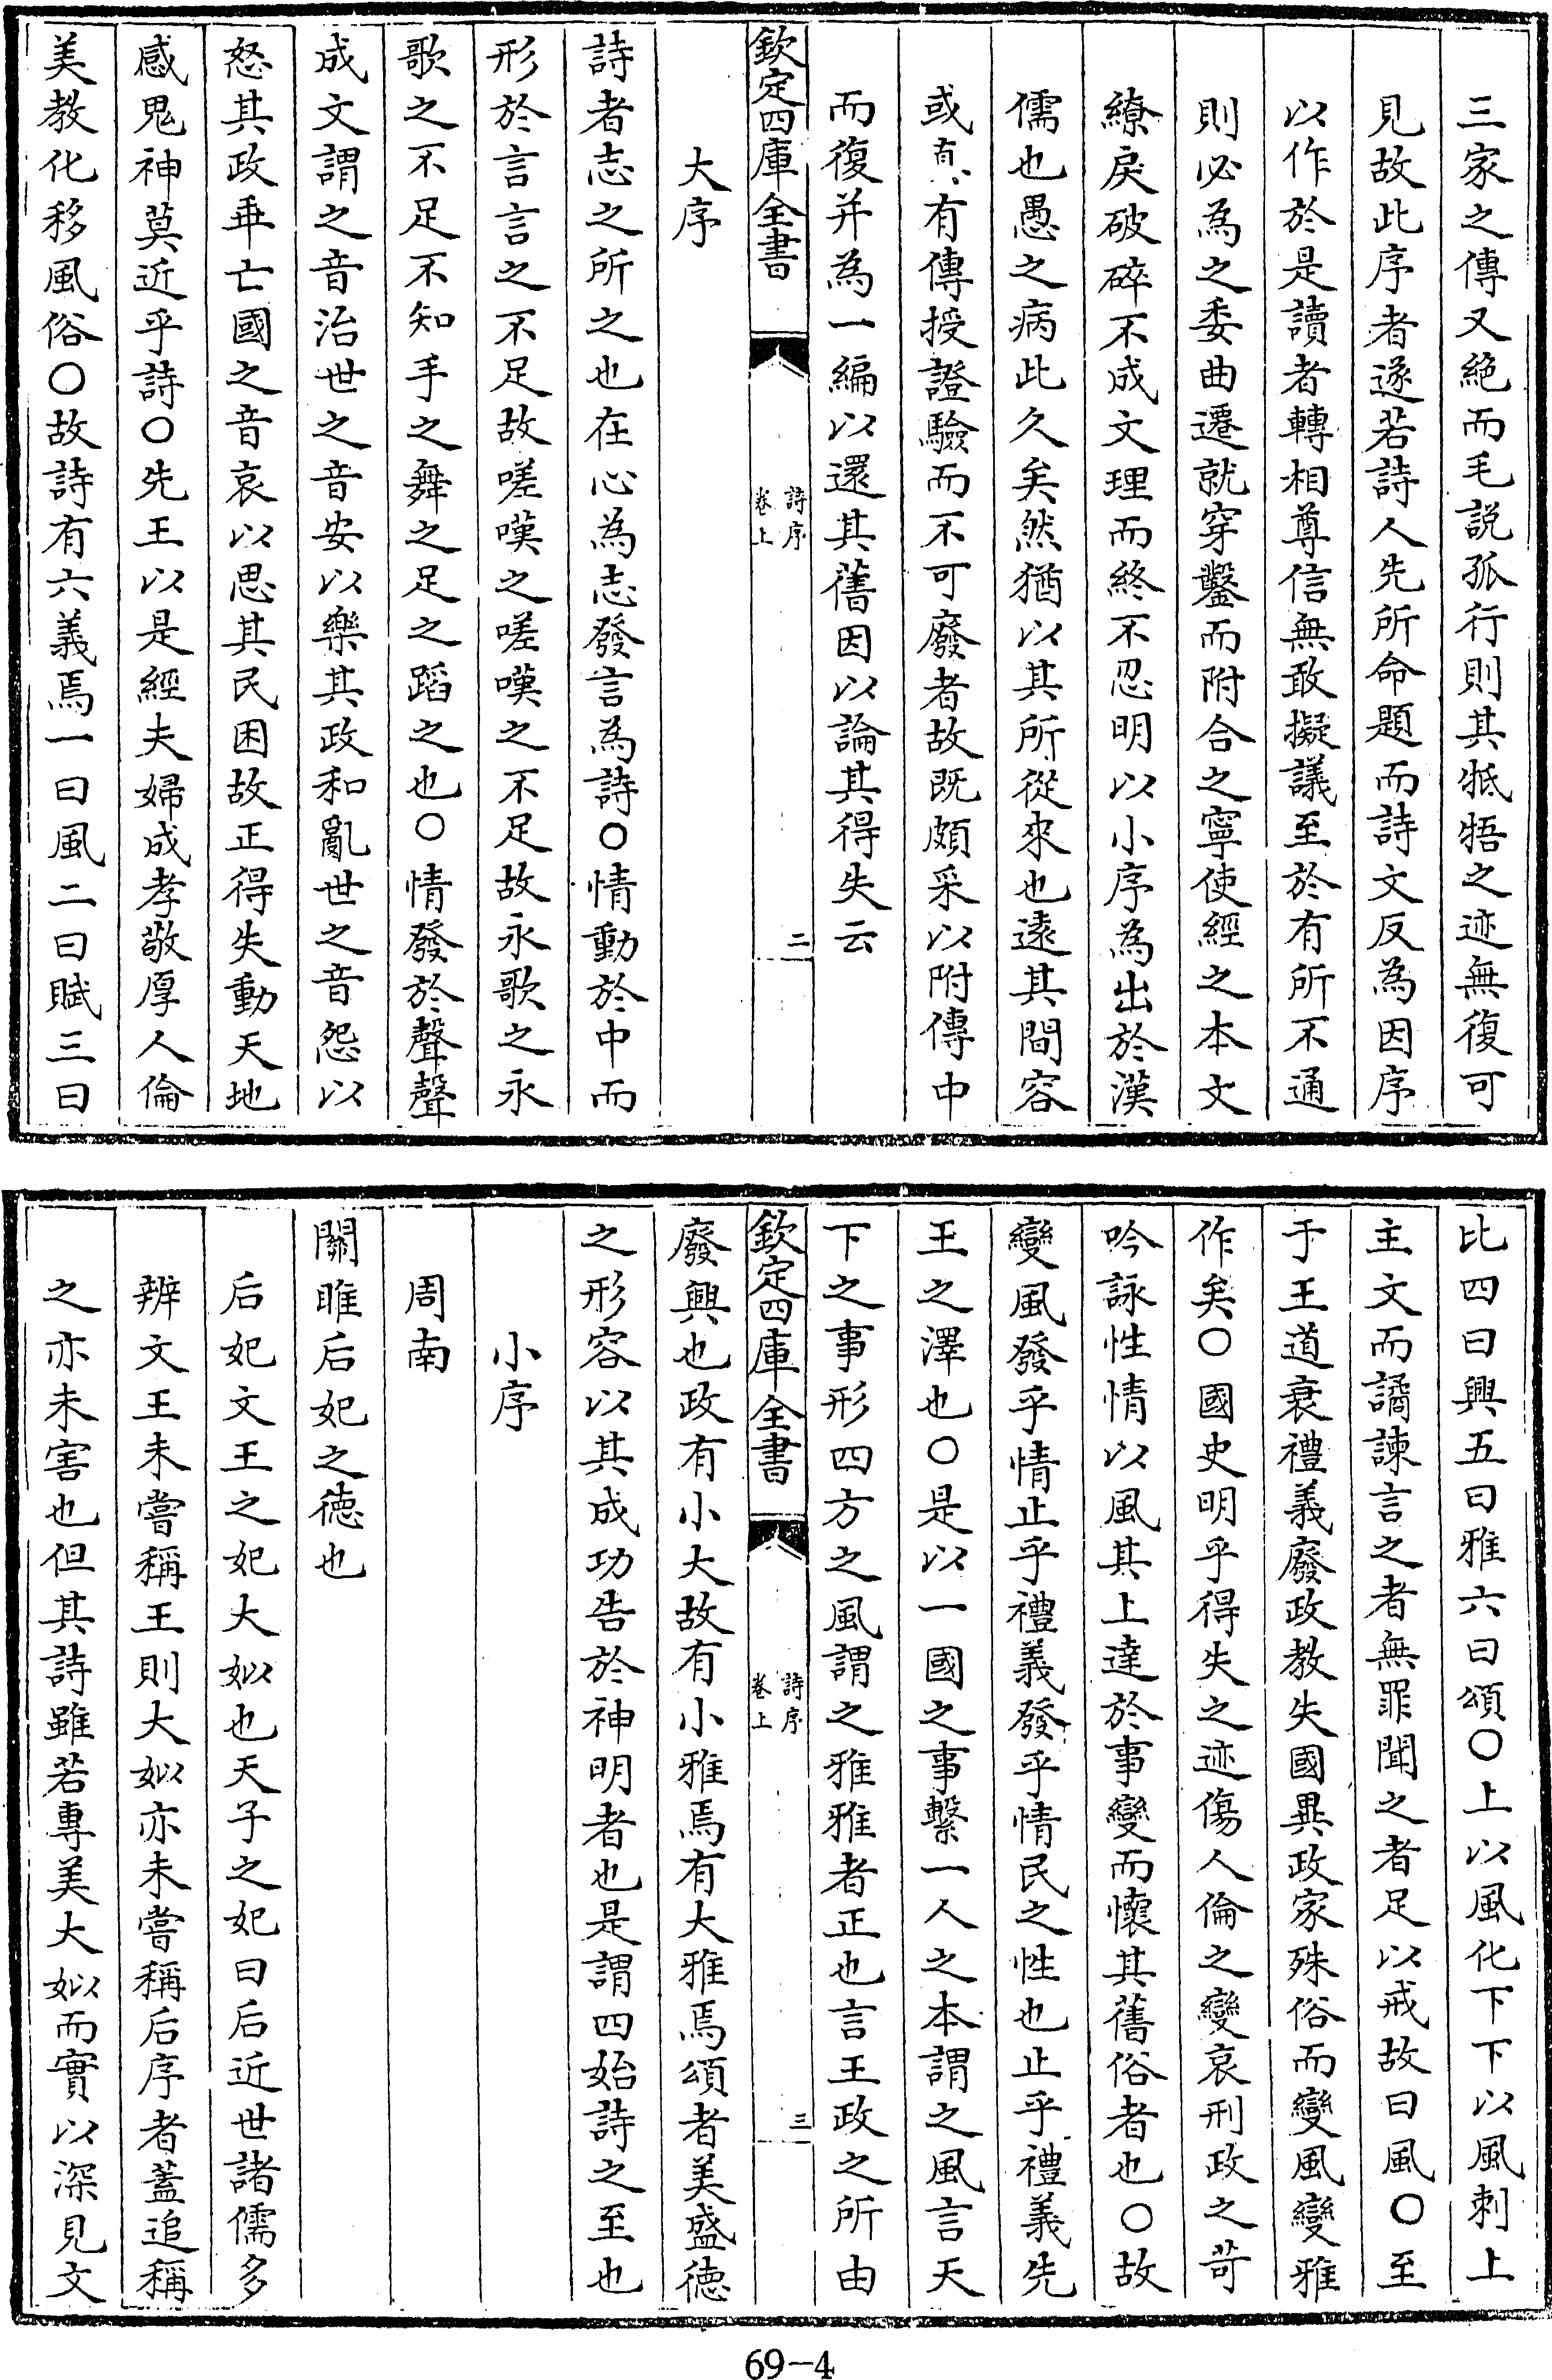 三家之傳又絶而毛説孤行則其牴牾之迹無復可
見故此序者遂若詩人先所命題而詩文反為因序
以作於是讀者轉相尊信無敢擬議至於有所不通
則必為之委曲遷就穿鑿而附合之寧使經之本文
繚戾破碎不成文理而終不忍明以小序為出於漢
儒也愚之病此久矣然猶以其所從來也遠其間容
或真有傳授證驗而不可廢者故既頗采以附傳中
而復并為一編以還其舊因以論其得失云
欽定四庫全書
詩序
卷上
二
大序
詩者志之所之也在心為志發言為詩〇情動於中而
形於言言之不足故嗟嘆之嗟嘆之不足故永歌之永
歌之不足不知手之舞之足之蹈之也〇情發於聲聲
成文謂之音治世之音安以樂其政和亂世之音怨以
怒其政乖亡國之音哀以思其民困故正得失動天地
感鬼神莫近乎詩〇先王以是經夫婦成孝敬厚人倫
美教化移風俗〇故詩有六義焉一曰風二曰賦三曰
比四曰興五曰雅六曰頌〇上以風化下下以風刺上
主文而譎諫言之者無罪聞之者足以戒故曰風〇至
于王道衰禮義廢政教失國異政家殊俗而變風變雅
作矣〇國史明乎得失之迹傷人倫之變哀刑政之苛
吟詠性情以風其上達於事變而懷其舊俗者也〇故
變風發乎情止乎禮義發乎情民之性也止乎禮義先
王之澤也〇是以一國之事繫一人之本謂之風言天
下之事形四方之風謂之雅雅者正也言王政之所由
欽定四庫全書
詩序
卷上
三
廢興也政有小大故有小雅焉有大雅焉頌者美盛徳
之形容以其成功告於神明者也是謂四始詩之至也
小序
周南
關雎后妃之徳也
后妃文王之妃大姒也天子之妃曰后近世諸儒多
辨文王未嘗稱王則大姒亦未嘗稱后序者蓋追稱
之亦未害也但其詩雖若專美大姒而實以深見文
69-4